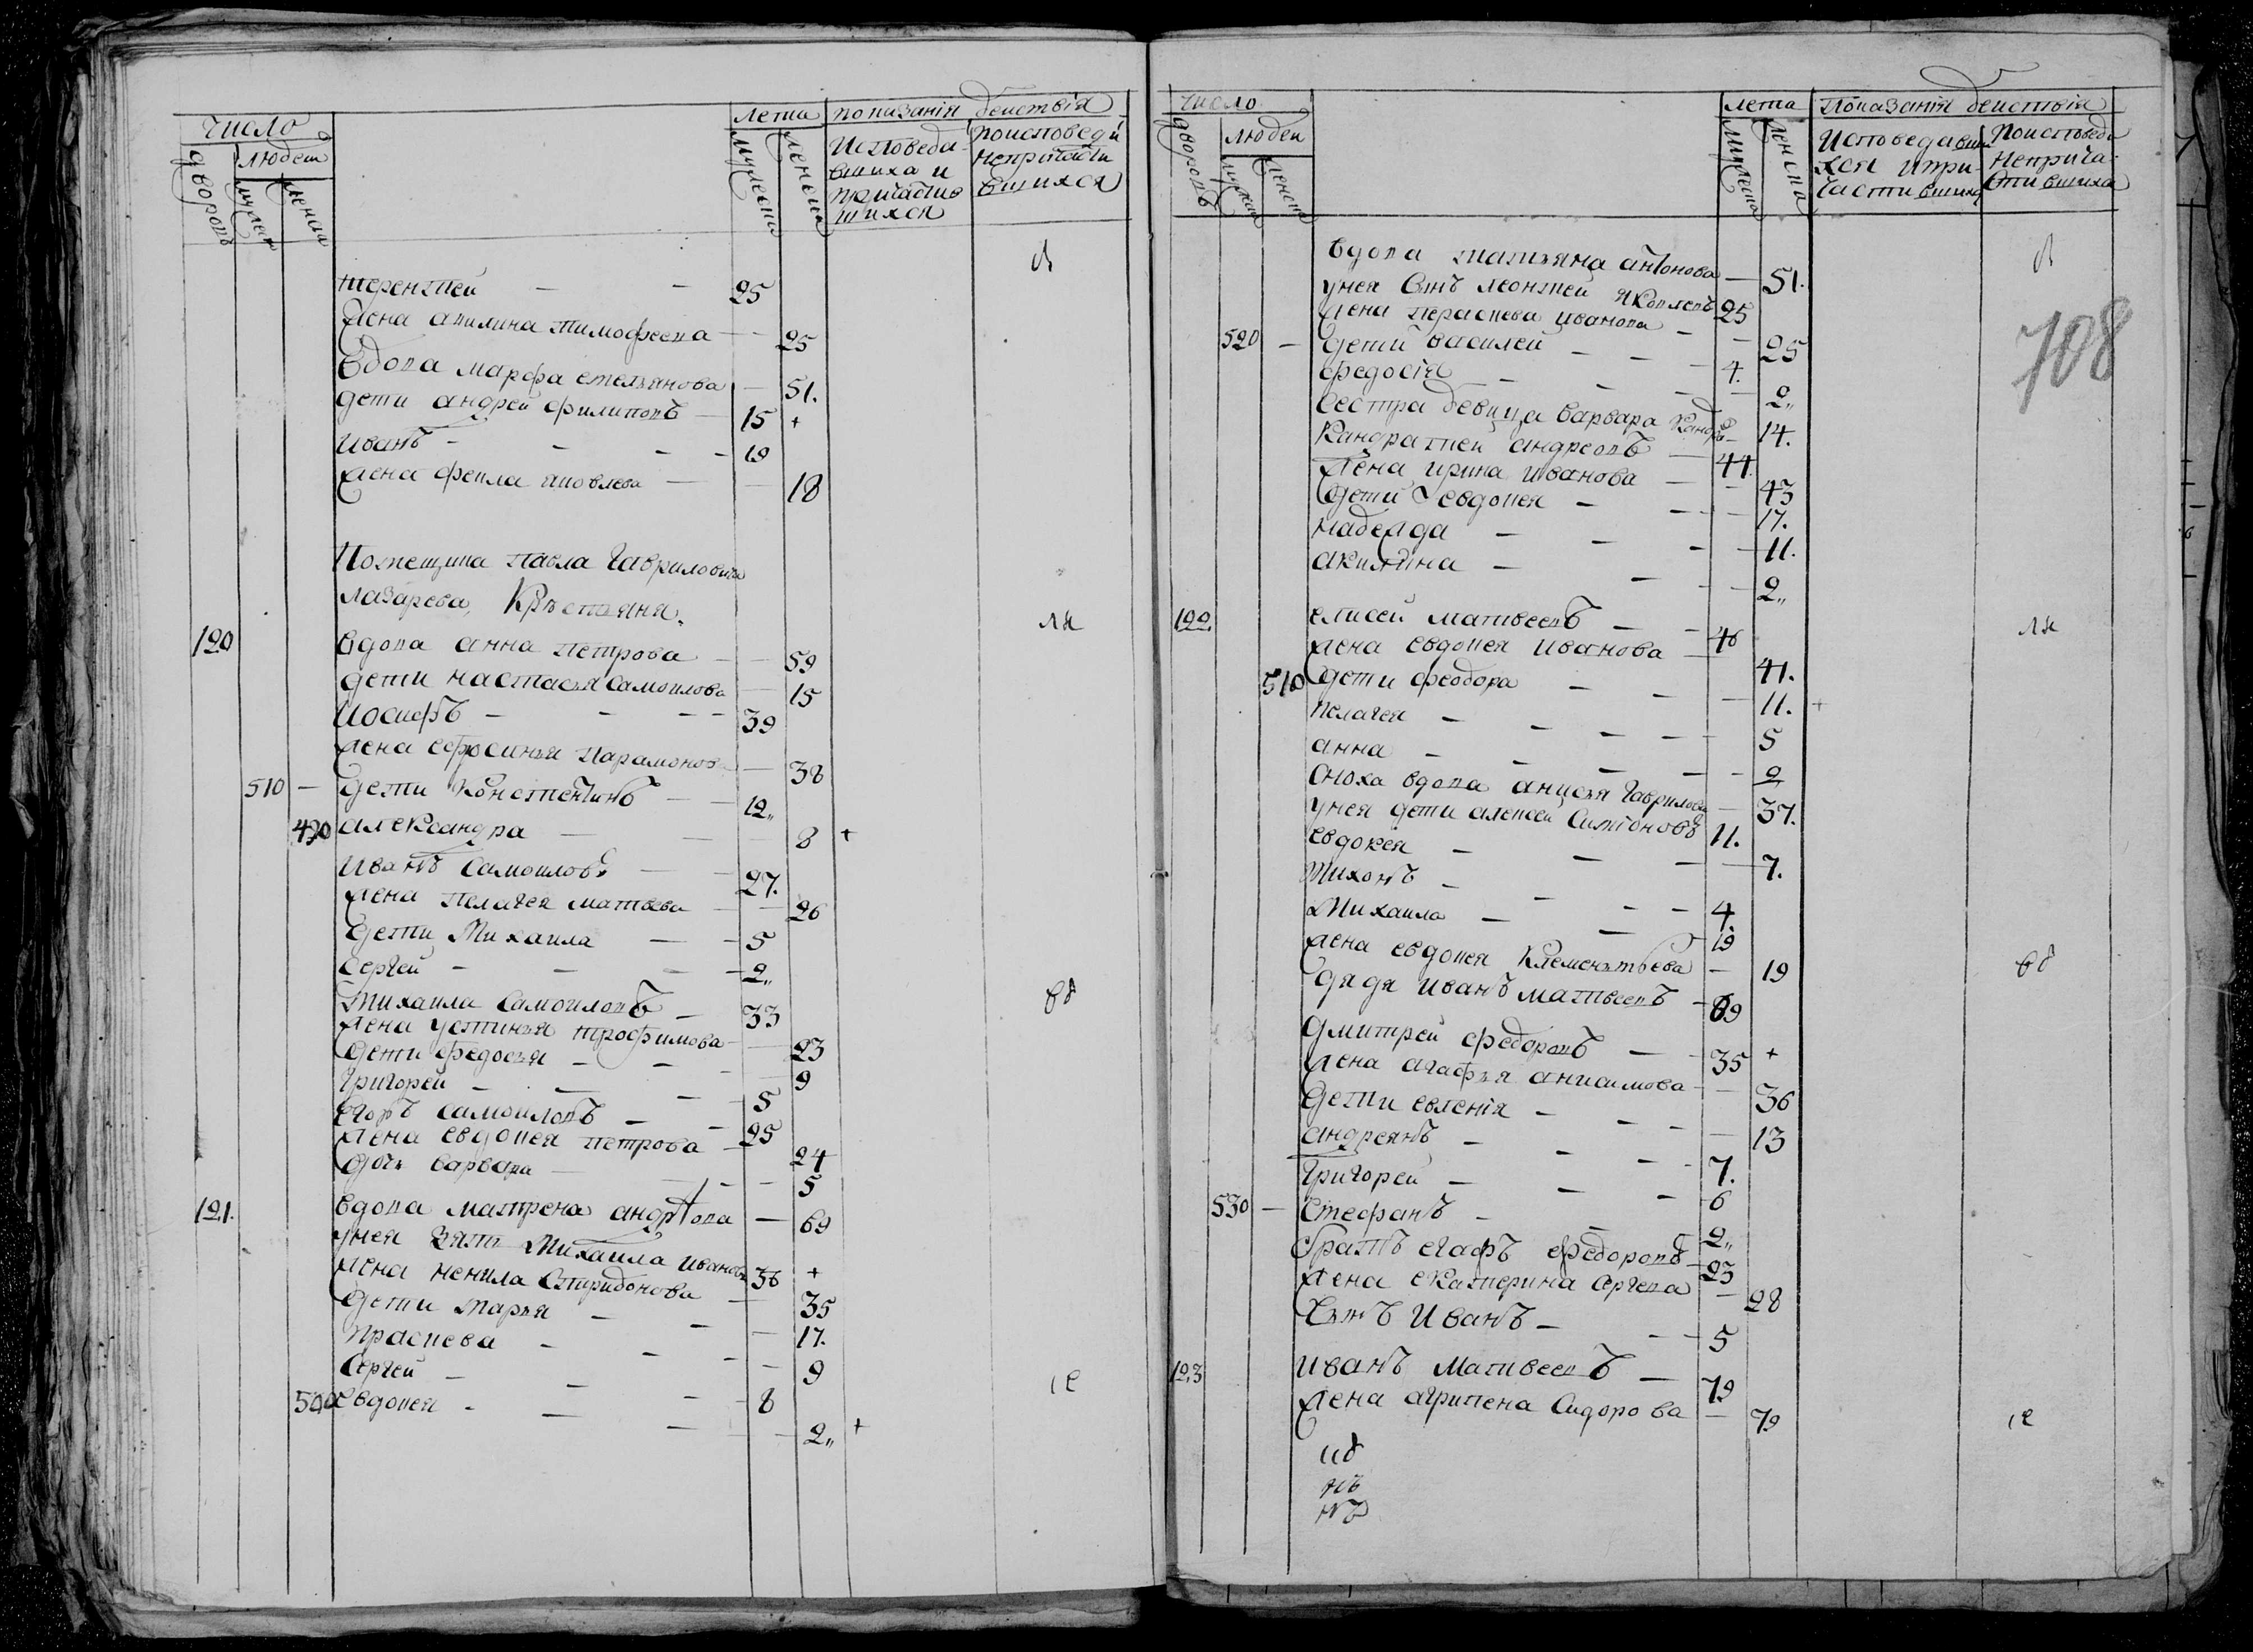 число
дворовъ
людеи
мужеска
женска
лета
мужеска
женска
показания действiя
Исповеда-
вшиха и
причастив
шихся
поисповеди
непричасти
вшихся
в
терентей — — 25
жена акилина тимофеева — 25
вдова марфа емельянова — 51.
дети андрей филиповъ — 15 +
иванъ — — — 19
жена фекла яковлева — 18
Помещика Павла Гавриловича
лазарева, Крестьяня.
120 вдова анна петрова — 59 ля
дети настасья самоилова — 15
Иосифъ — — — 39
жена ефросинья Парамонова — 38
510 — дети Констентинъ — 12
490 александра — 8 +
Иванъ Самоиловъ — 27.
жена Пелагея матвева — 26
дети Михаила — 5
Сергей — — — 2
Михаила Самоиловъ — 33 вд
жена устинья трофимова — 23
дети федосья — — 9
Григорей — — — 5
Егоръ самоиловъ — 25
жена евдокея петрова — 24
дочь варвара — — 5
121. вдова матрена — 69
унея зять Михаила Ивановъ 36 +
жена ненила Спиридонова — 35
дети марья — — 17.
праскева — — — 9
Сергей — — — 8
500 Евдокея — — — 2 + ıе
число
дворовъ
людеи
мужеска
женска
лета
мужеска
женска
Показания действiя
Исповедавши
хся ипри-
частившиха
Поисповеди
Неприча-
стившиха
в
вдова татьяна антонова — 51.
708
унея Сынъ леонтей яковлевъ 25
жена Параскева иванова — 25
520 — дети василей — — 4.
федосiя — — — 2
сестра девица варвара Кандр — 14.
Кандратей андреевъ — 44
жена ирина иванова — 43
дети евдокея — — 17.
надежда — — — 11.
акилина — — — 2
122. елисей матвеевъ — 46 ля
жена евдокея иванова — 41.
510 дети феодора — — 11. +
пелагея — — — 5
анна — — — 2
сноха вдова анисья гаврилова — 37.
унея дети алексей Симионовъ 11.
евдокея — — — 7.
Тихонъ — — — 4
Михаила — — 19
жена евдокея Клементьева — 19 вд
дядя иванъ матвеевъ — 69
дмитрей федоровъ — 35 +
жена агафья анисимова — 36
дети евгенiя — — 13
андреянъ — — — 7.
Григорей — — — 6
530 — Стефанъ — — 2
братъ егафъ федоровъ — 23
жена екатерина сергева — 28
Сынъ Иванъ — — 5
123 иванъ Матвеевъ — 79
жена агрипена Сидорова — 79 ıе
ид
нъ
нъ